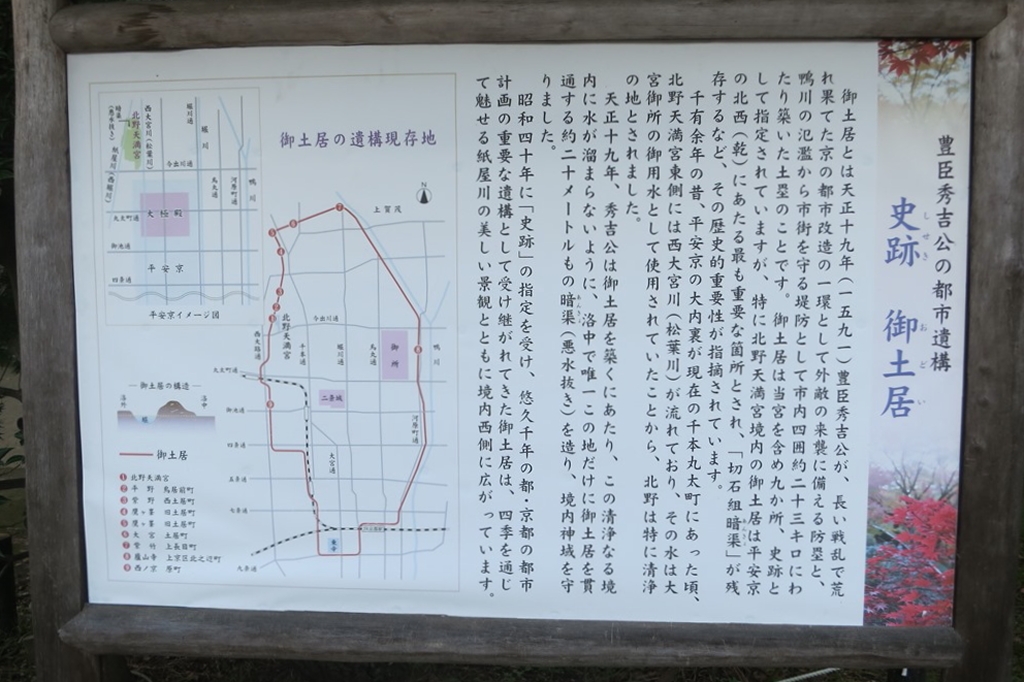 豊臣秀吉公の都市遺構
史跡 御土居
しせき おどい
御土居とは天正十九年(一五九一)豊臣秀吉公が、長い戦乱で荒
れ果てた京の都市改造の一環として外敵の来襲に備える防塁と、
鴨川の氾濫から市街を守る堤防として市内四囲約二十三キロにわ
たり築いた土塁のことです。御土居は当宮を含め九か所、史跡と
して指定されていますが、特に北野天満宮境内の御土居は平安京
の北西(乾)にあたる最も重要な箇所とされ、「切石組暗渠」が残
存するなど、その歴史的重要性が指摘されています。
千有余年の昔、平安京の大内裏が現在の千本丸太町にあった頃、
北野天満宮東側には西大宮川(松葉川)が流れており、その水は大
宮御所の御用水として使用されていたことから、北野は特に清浄
の地とされました。
天正十九年、秀吉公は御土居を築くにあたり、この清浄なる境
内に水が溜まらないように、洛中で唯一この地だけに御土居を貫
通する約二十メートルもの暗渠(悪水抜き)を造り、境内神域を守
りました。
昭和四十年に「史跡」の指定を受け、悠久千年の都・京都の都市
計画の重要な遺構として受け継がれてきた御土居は、四季を通じ
て魅せる紙屋川の美しい景観とともに境内西側に広がっています。
御土居の遺構現存地
N
上賀茂
北野天満宮
今出川通
西大路通
千本通
堀川通
烏丸通
御所
鴨川
丸太町通
二条城
御池通
河原町通
四条通
大宮通
五条通
七条通
東寺
九条通
北野天満宮
西大宮川(松葉川)
堀川通
堀川
紙屋川(西堀川)
今出川通
烏丸通
河原町通
鴨川
丸太町通
大極殿
御池通
平安京
四条通
平安京イメージ図
御土居の構造
洛外
洛中
堀
御土居
❶北野天満宮
❷平野 鳥居前町
❸紫野 西土居町
❹鷹ヶ峯 旧土居町
❺鷹ヶ峯 旧土居町
❻大宮 土居町
❼紫竹 上長目町
❽廬山寺 上京区北之辺町
❾西ノ京 原町